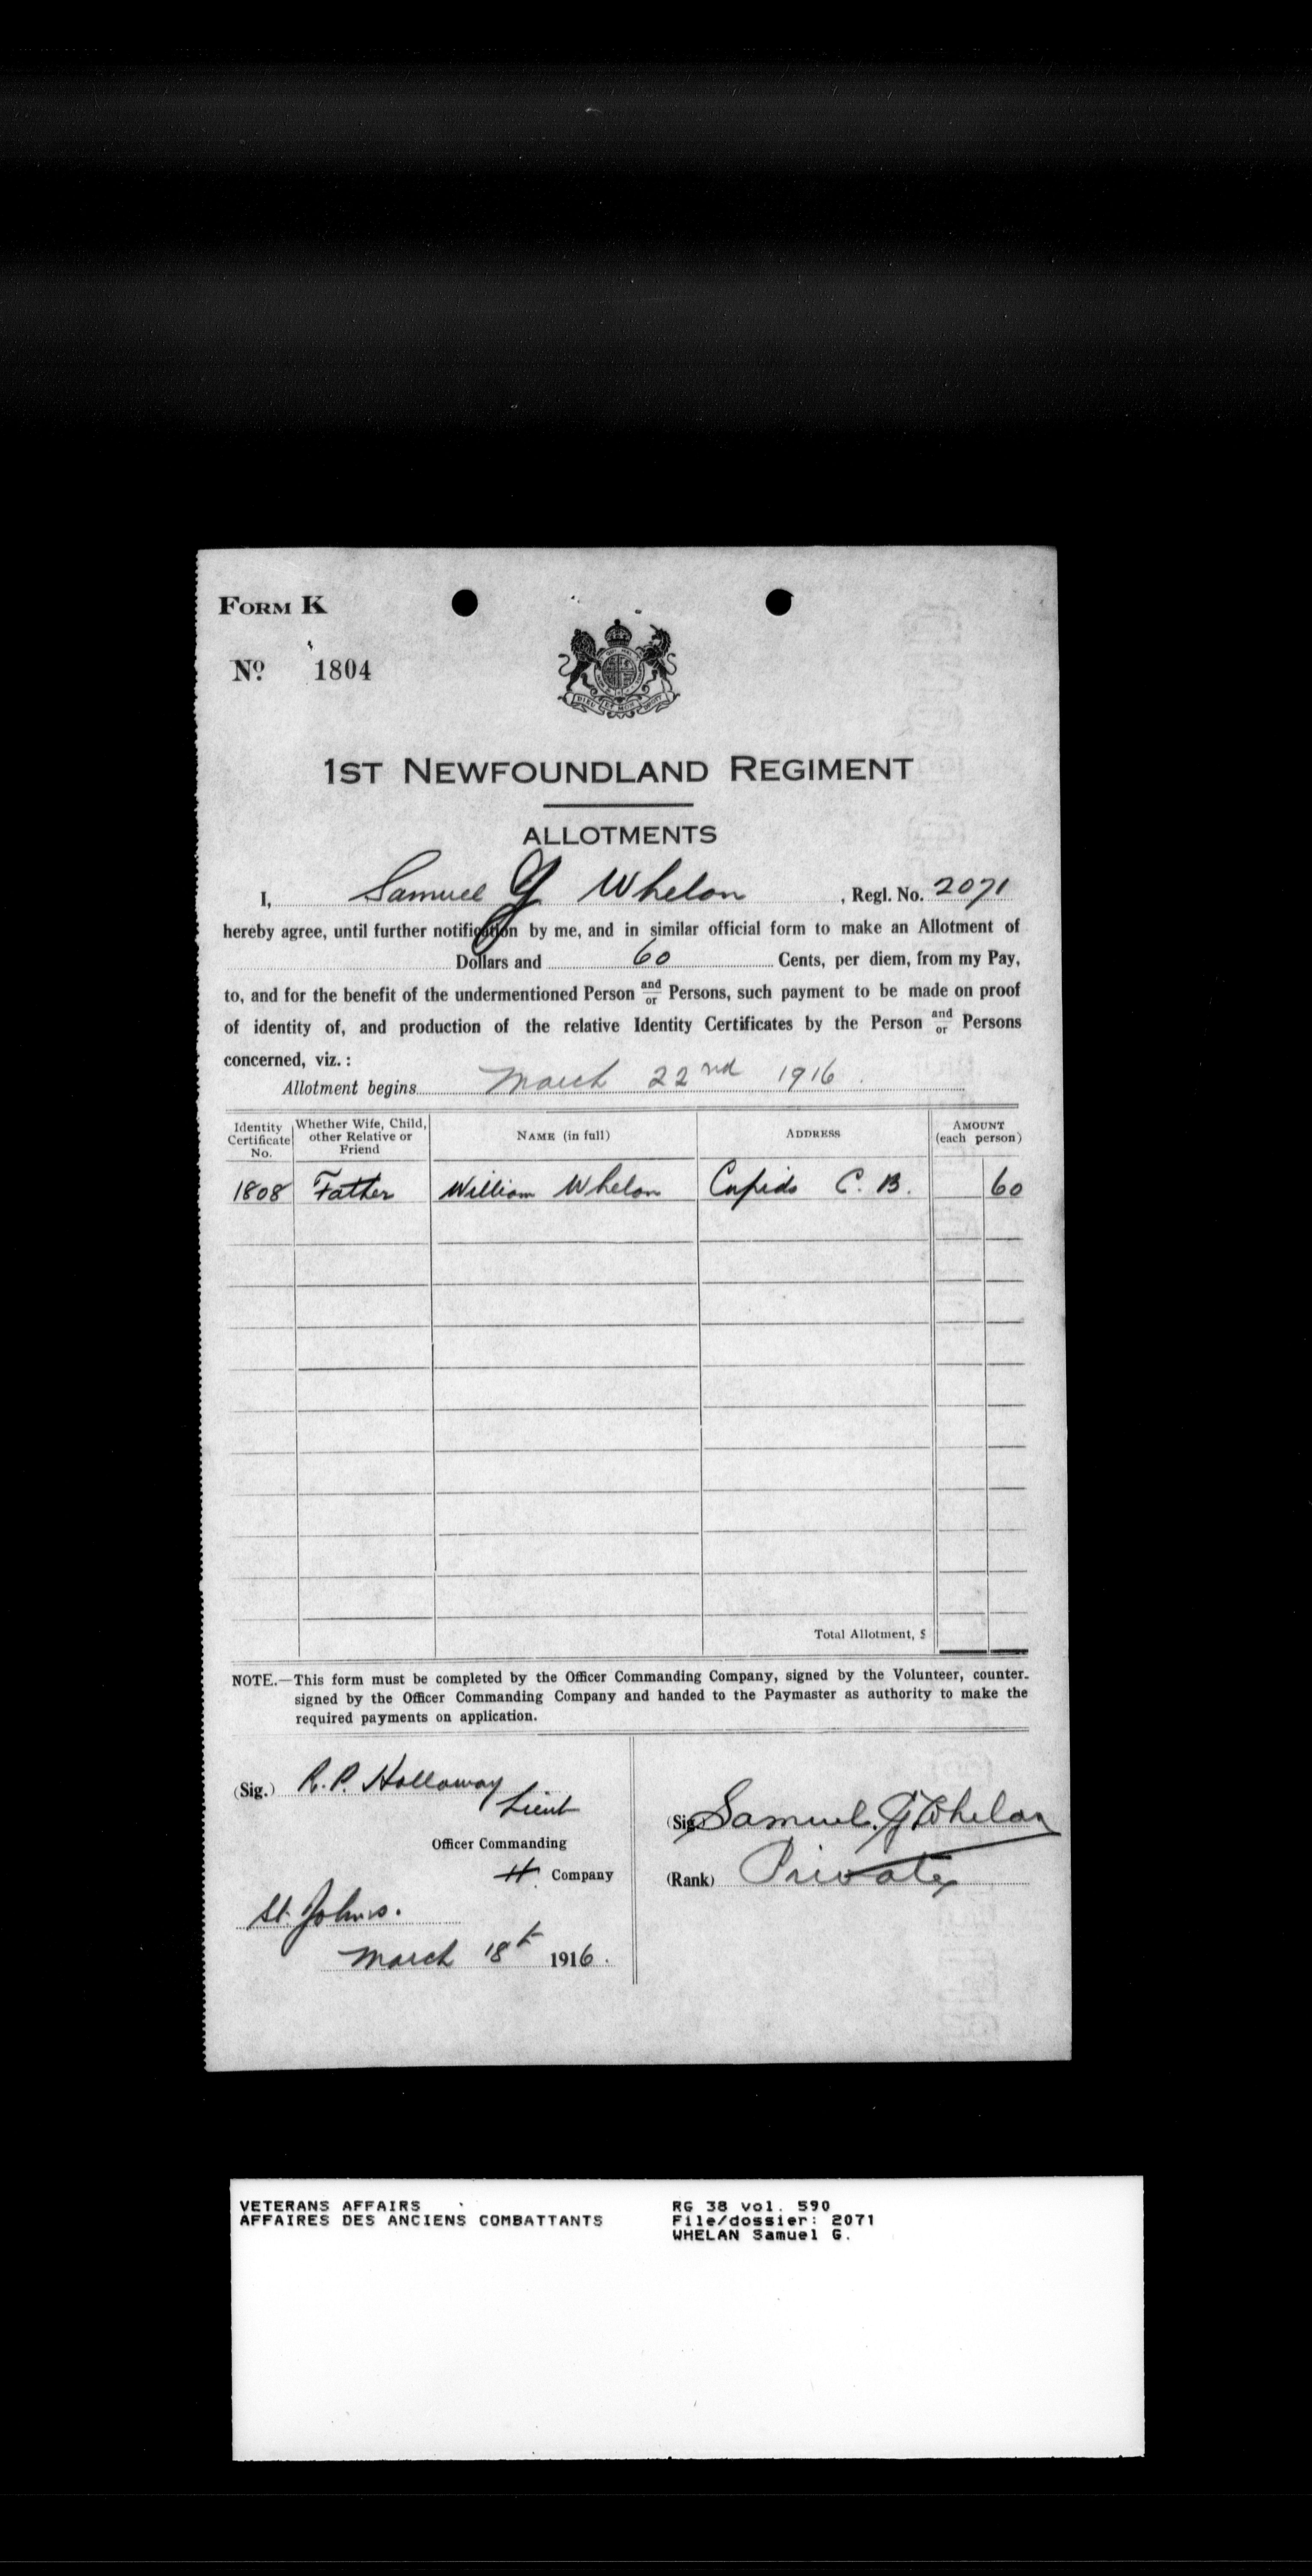 FORM K
No. 1804
1ST NEWFOUNDLAND REGIMENT
ALLOTMENTS
I, Samuel G Whelan, Regl. No. 2071
hereby agree, until further notification by me, and in similar official form to make an Allotment of
Dollars and 60 Cents, per diem, from my Pay,
to, and for the benefit of the undermentioned Person and/or Persons, such payment to be made on proof
of identity of, and production of the relative Identity Certificates by the Person and/or Persons
concerned, viz. :
Allotment begins March 22nd 1916.
Identity Certificate No. Whether Wife, Child, other Relative or Friend NAME (in full) ADDRESS AMOUNT (each person)
1808 Father William Whelan Cupids C. B. 60
Total Allotment, $
NOTE.—This form must be completed by the Officer Commanding Company, signed by the Volunteer, counter-
signed by the Officer Commanding Company and handed to the Paymaster as authority to make the
required payments on application.
(Sig.) R. P. Holloway
Lieut
Officer Commanding
H. Company
St. Johns.
March 18th 1916.
(Sig.) Samuel. G Whelan
(Rank) Private
VETERANS AFFAIRS
AFFAIRES DES ANCIENS COMBATTANTS
RG 38 vol. 590
File/dossier: 2071
WHELAN Samuel G.